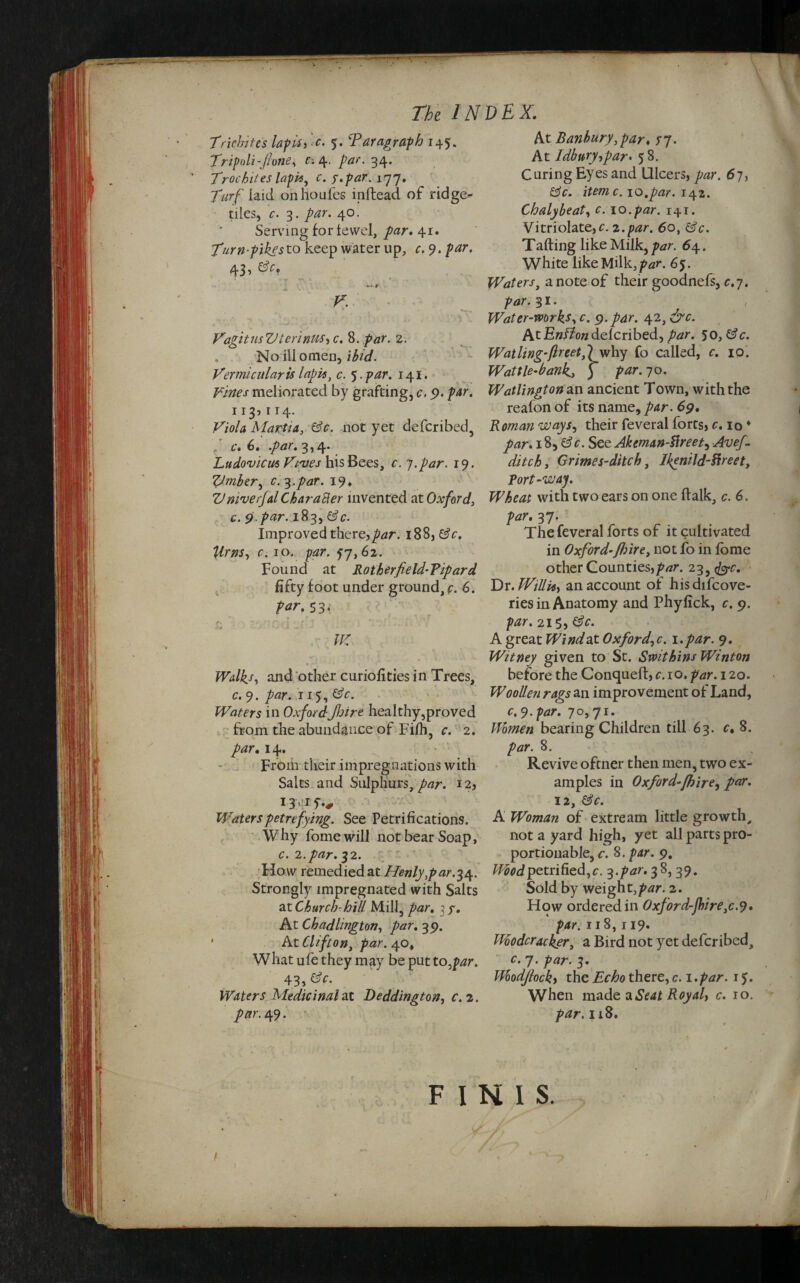 The INDEX.
Trichites lapis, c. 5. Paragraph 145.
Tripoli-ſtone, c. 4. par. 34.
Trochites lapis, c. 5. par. 177.
Turf laid on houſes inſtead of ridge-
tiles, c. 3. par. 40.
Serving for fewel, par. 41.
Turn-pikes to keep water up, c. 9. par.
43, &c.
V.
Vagitus Uterinus, c. 8. par. 2.
No ill omen, ibid.
Vermicularis lapis, c. 5. par. 141.
Vines meliorated by grafting, c. 9. par.
113, 114.
Viola Martia, &c. not yet deſcribed,
c. 6. par. 3, 4.
Ludovicus Vives his Bees, c. 7. par. 19.
Umber, c. 3. par. 19.
Univerſal Character invented at Oxford,
c. 9. par. 183, &c.
Improved there, par. 188, &c.
Urns, c. 10. par. 57, 62.
Found at Rotherfield-Pipard
fifty foot under ground, c. 6.
par. 53.
W.
Walks, and other curioſities in Trees,
c. 9. par. 115, &c.
Waters in Oxford-ſhire healthy, proved
from the abundance of Fiſh, c. 2.
par. 14.
From their impregnations with
Salts and Sulphurs, par. 12,
13, 15.
Waters petrefying. See Petrifications.
Why ſome will not bear Soap,
c. 2. par. 32.
How remedied at Henly, par. 34.
Strongly impregnated with Salts
at Church-hill Mill, par. 35.
At Chadlington, par. 39.
At Clifton, par. 40.
What uſe they may be put to, par.
43, &c.
Waters Medicinal at Deddington, c. 2.
par. 49.
At Banbury, par. 57.
At Idbury, par. 58.
Curing Eyes and Ulcers, par. 67,
&c. item c. 10. par. 142.
Chalybeat, c. 10. par. 141.
Vitriolate, c. 2. par. 60, &c.
Taſting like Milk, par. 64.
White like Milk, par. 65.
Waters, a note of their goodneſs, c. 7.
par. 31.
Water-works, c. 9. par. 42, &c.
At Enſton deſcribed, par. 50, &c.
Watling-ſtreet, } why ſo called, c. 10.
Wattle-bank, } par. 70.
Watlington an ancient Town, with the
reaſon of its name, par. 69.
Roman ways, their ſeveral ſorts, c. 10.
par. 18, &c. See Akeman-ſtreet, Aveſ-
ditch, Grimes-ditch, Ikenild-ſtreet,
Port-way.
Wheat with two ears on one ſtalk, c. 6.
par. 37.
The ſeveral ſorts of it cultivated
in Oxford-ſhire, not ſo in ſome
other Counties, par. 23, &c.
Dr. Willis, an account of his diſcove-
ries in Anatomy and Phyſick, c. 9.
par. 215, &c.
A great Wind at Oxford, c. 1. par. 9.
Witney given to St. Swithins Winton
before the Conqueſt, c. 10. par. 120.
Woollen rags an improvement of Land,
c. 9. par. 70, 71.
Women bearing Children till 63. c. 8.
par. 8.
Revive oftner then men, two ex-
amples in Oxford-ſhire, par.
12, &c.
A Woman of extream little growth,
not a yard high, yet all parts pro-
portionable, c. 8. par. 9.
Wood petrified, c. 3. par. 38, 39.
Sold by weight, par. 2.
How ordered in Oxford-ſhire, c. 9.
par. 118, 119.
Woodcracker, a Bird not yet deſcribed,
c. 7. par. 3.
Woodſtock, the Echo there, c. 1. par. 15.
When made a Seat Royal, c. 10.
par. 118.
FINIS.